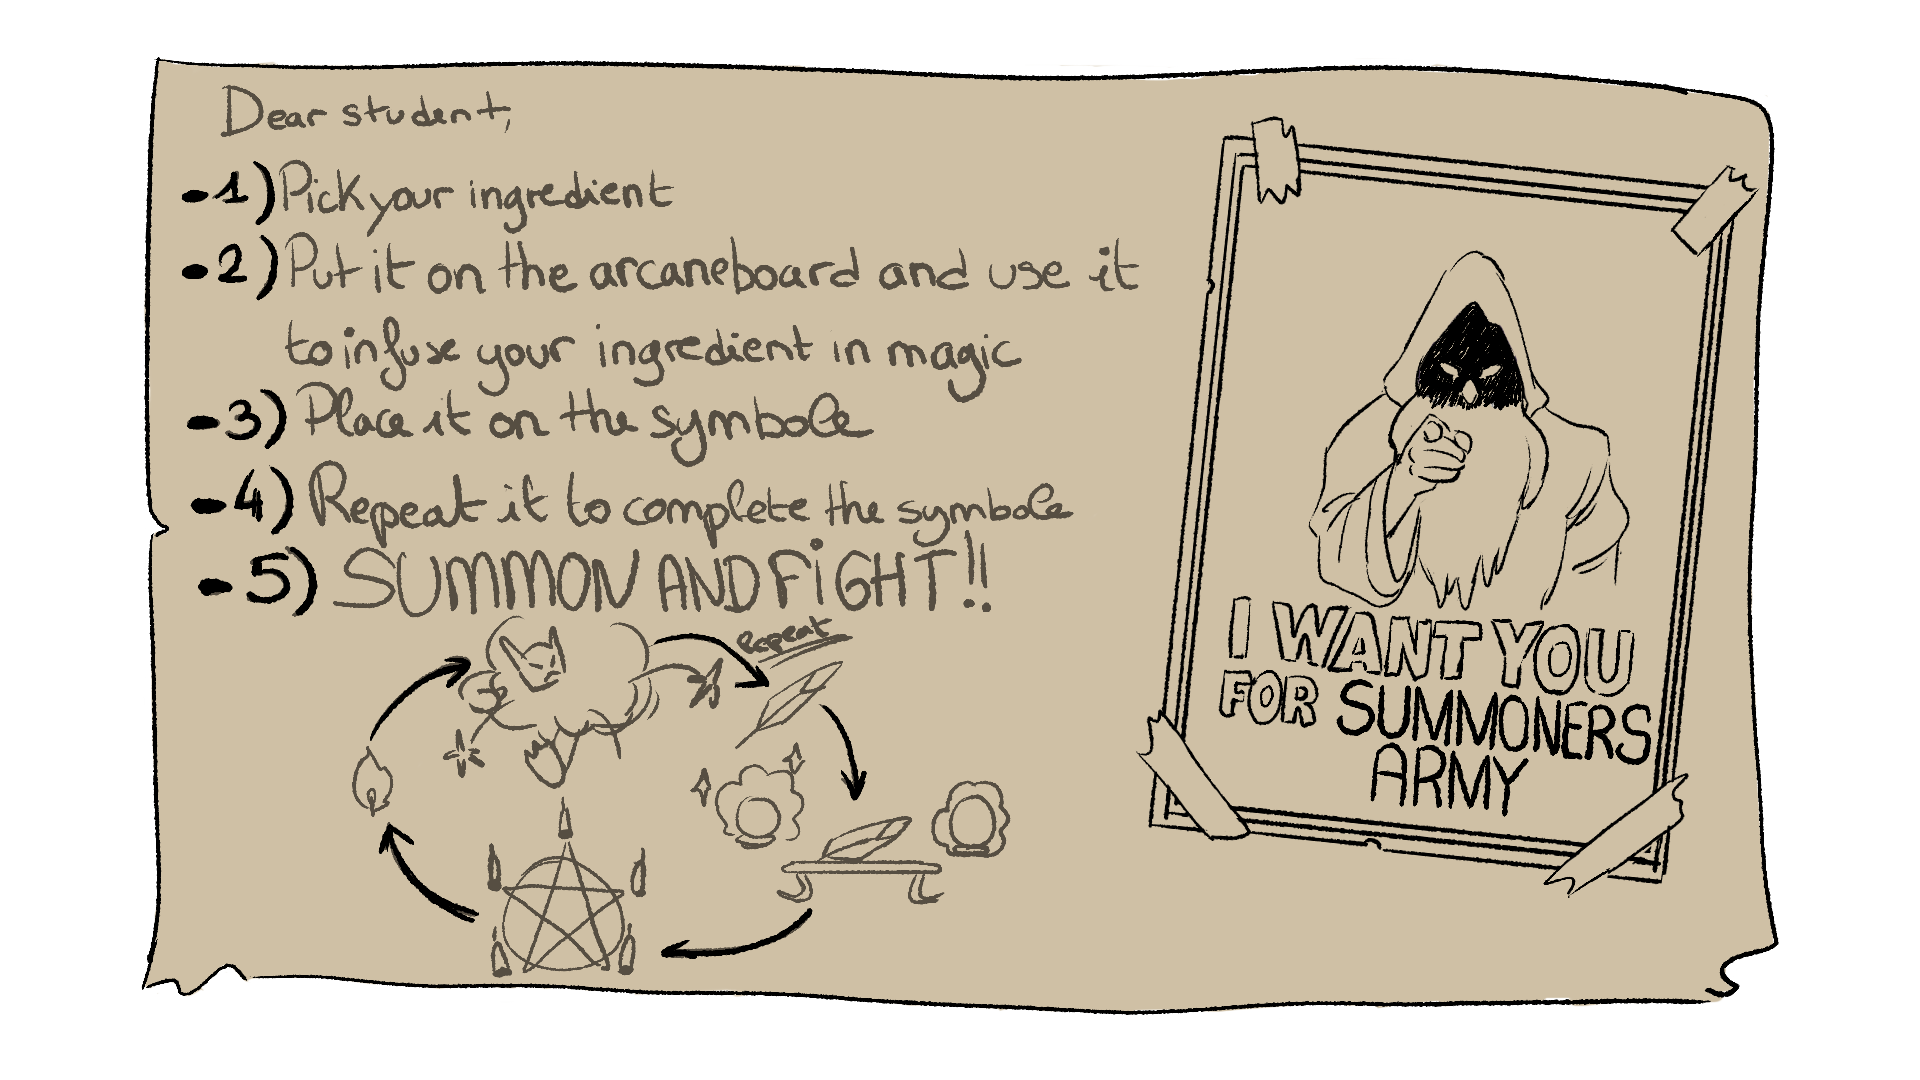 Dear student,
-1) Pick your ingredient
-2) Put it on the arcaneboard and use it
to infuse your ingredient in magic
-3) Place it on the symbole
-4) Repeat it to complete the symbole
-5) SUMMON AND FiGHT!!
Repeat
I WANT YOU
FOR SUMMONERS
ARMY